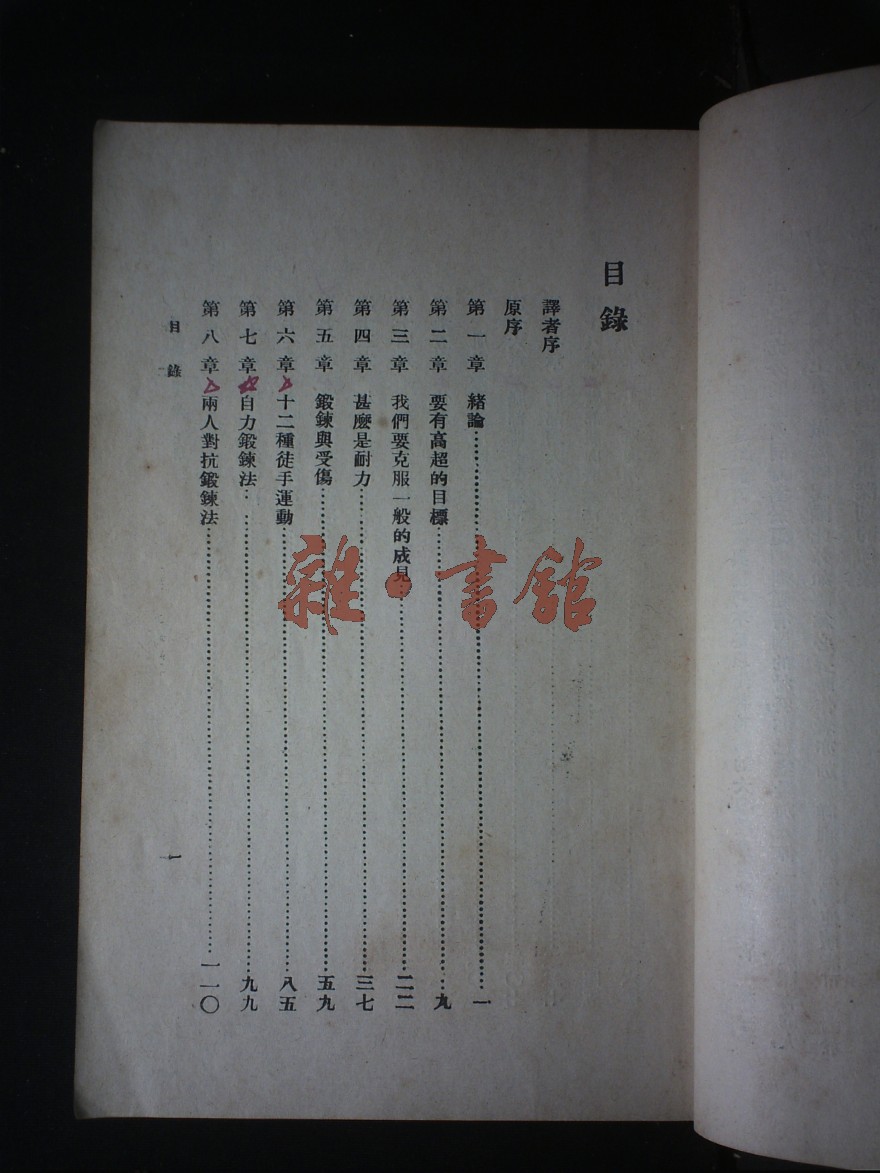 目錄
譯者序
原序
第一章 緒論…………一
第二章 要有高超的目標…………九
第三章 我們要克服一般的成見…………二二
第四章 甚麼是耐力…………三七
第五章 鍛鍊與受傷…………五九
第六章 十二種徒手運動…………八五
第七章 自力鍛鍊法…………九九
第八章 兩人對抗鍛鍊法…………一一〇
目錄 一
雜·書館